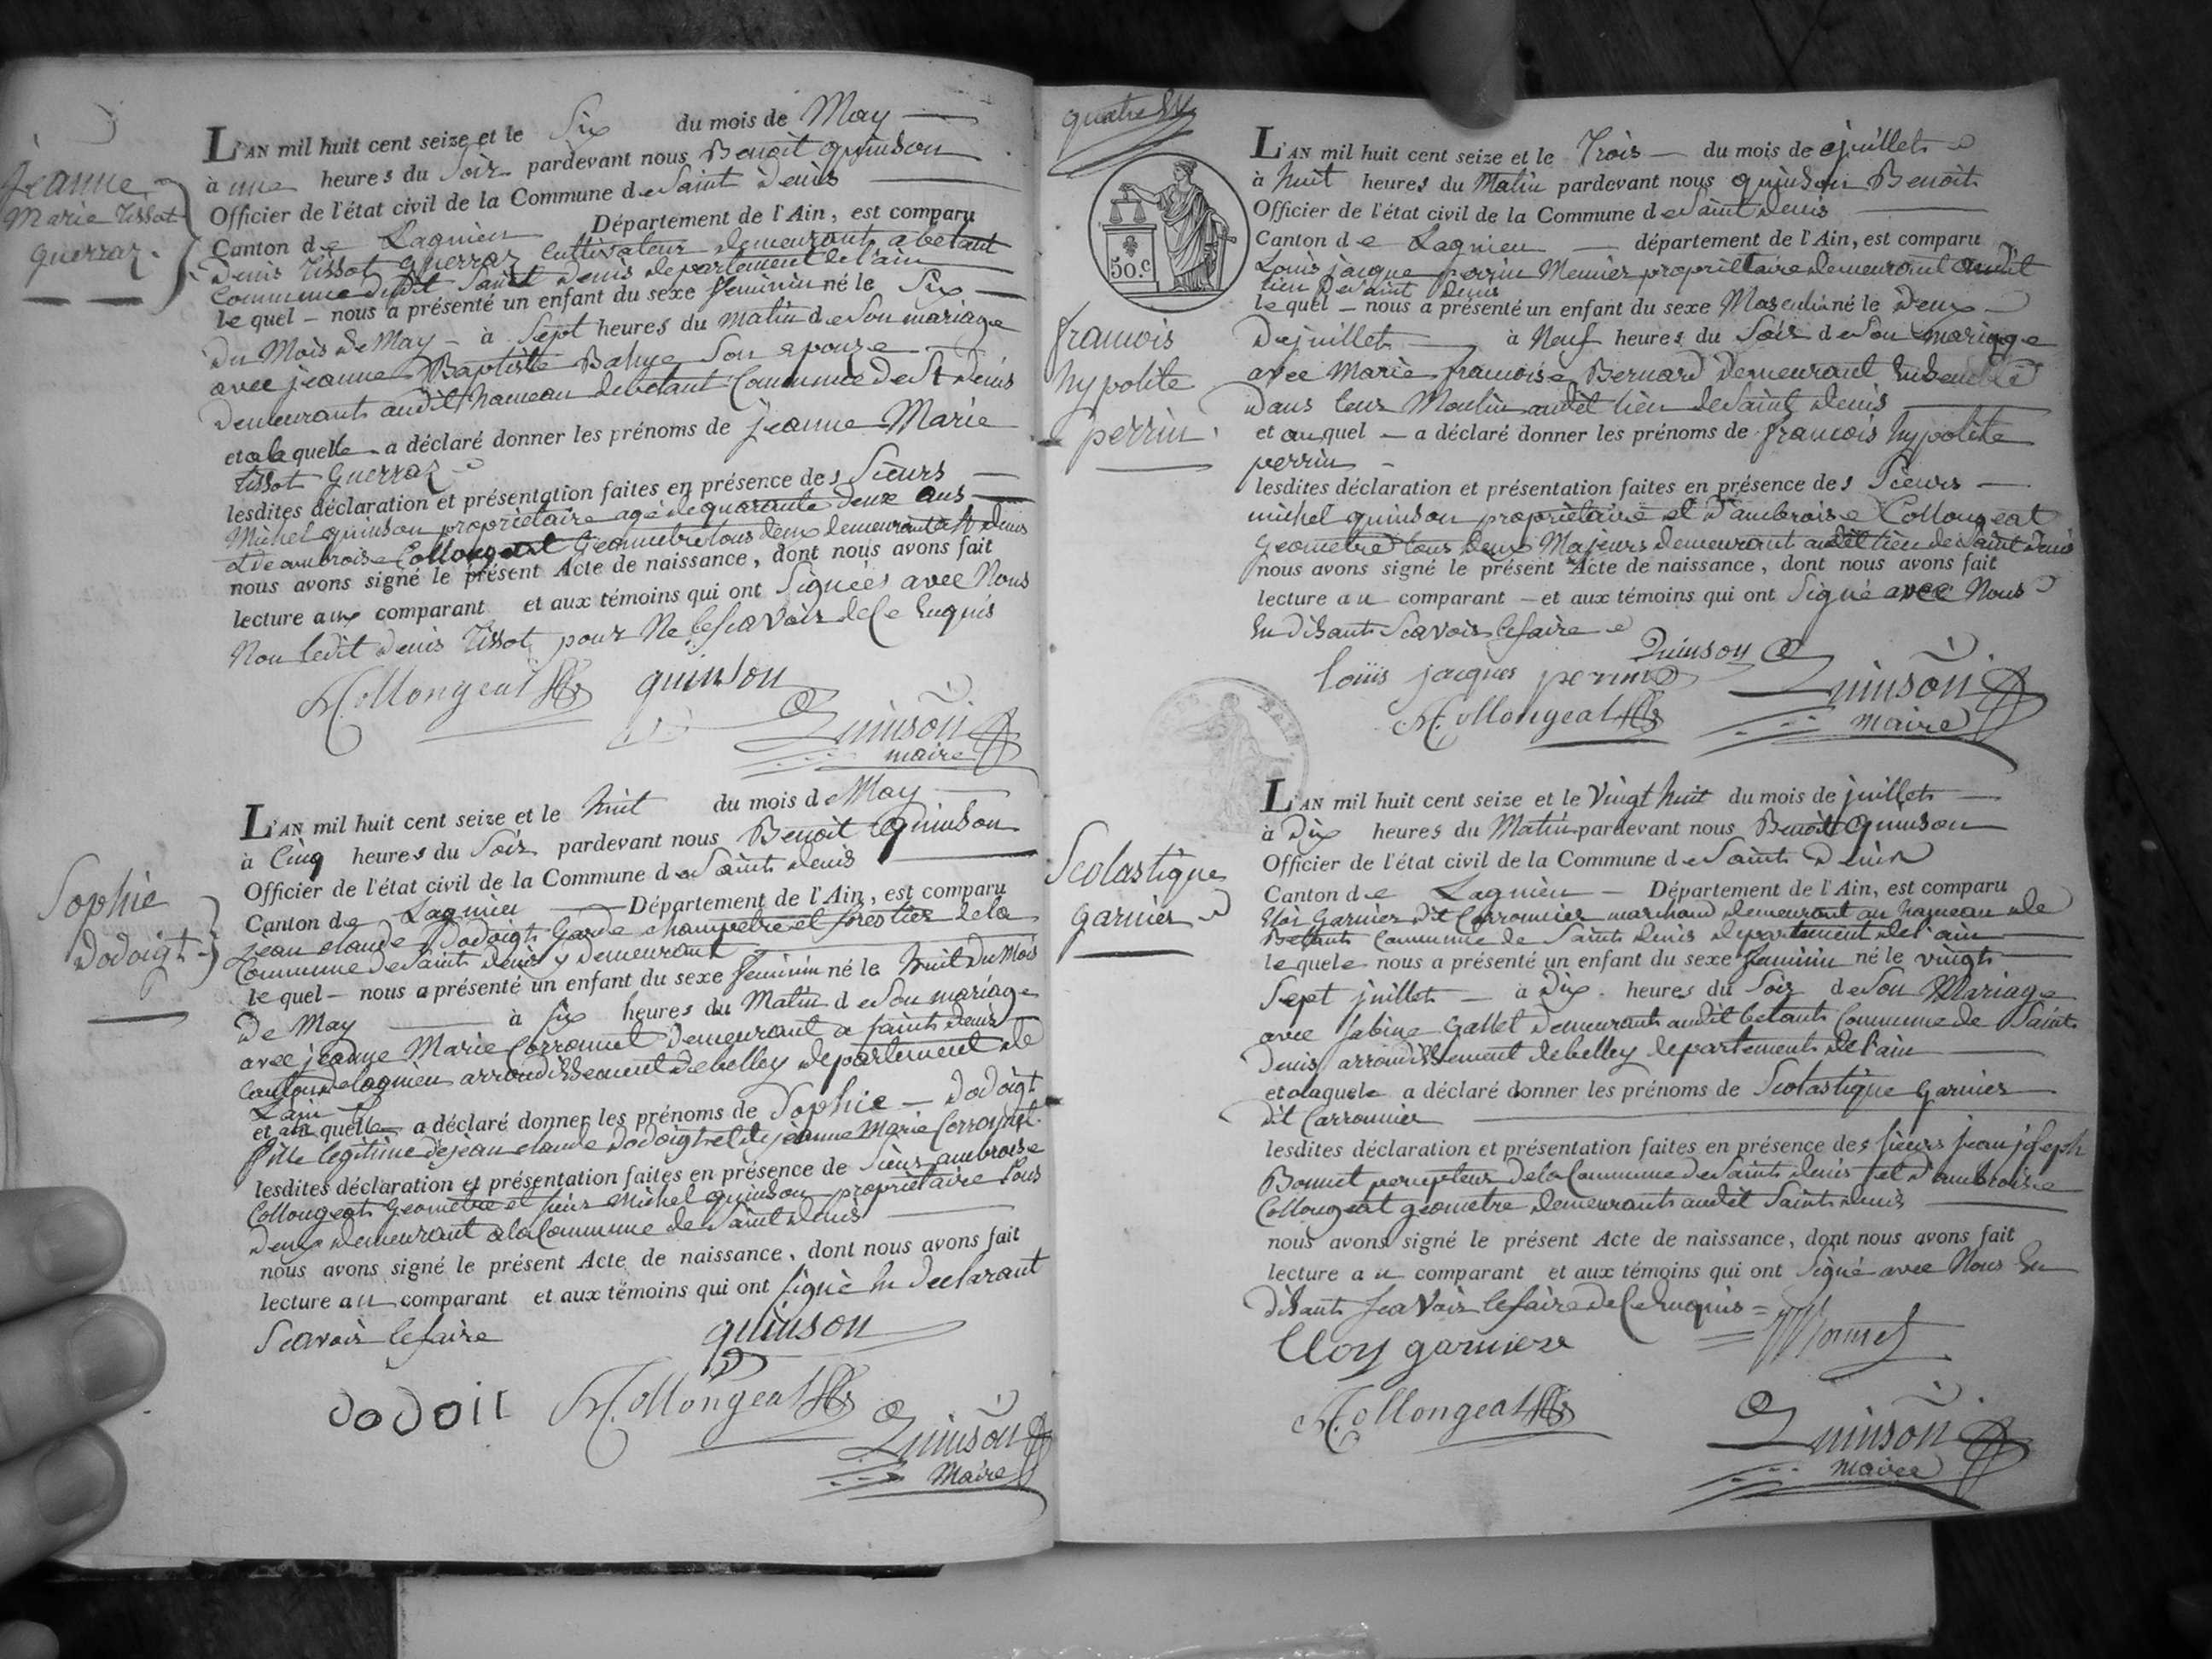 Jeanne
Marie Tissot
guerraz.
L'AN mil huit cent seize et le Six du mois de May
à une heures du Soir pardevant nous Benoit quinson
Officier de l'état civil de la Commune de Saint Denis
Canton de Lagnieu Département de l'Ain, est comparu
Denis Tissot guerraz Cultivateur demeurant a betant
Commune dudit Saint Denis departement de l'ain
lequel nous a présenté un enfant du sexe feminin né le Six
du Mois de May à Sept heures du matin de Son mariage
avec jeanne Baptiste Son epouse
Demeurants audit hameau de betant Commune de St Denis
et a laquelle a déclaré donner les prénoms de jeanne Marie
tissot Guerraz
lesdites déclaration et présentation faites en présence des Sieurs
Michel quinson propriétaire agé de quarante deux ans
et de ambroise Collongeat Geometre tous deux demeurant a St Denis
nous avons signé le présent Acte de naissance, dont nous avons fait
lecture aux comparant et aux témoins qui ont Signées avec Nous
Non ledit denis Tissot pour Ne le scavoir de Ce Enquis
Collongeat quinson
Quinson
maire
Sophie
dodoigt
L'AN mil huit cent seize et le huit du mois de May
à Cinq heures du Soir pardevant nous Benoit quinson
Officier de l'état civil de la Commune de Saint denis
Canton de Lagnieu Département de l'Ain, est comparu
jean claude Dodoigt Garde champetre et forestier de la
Commune de Saint denis y demeurant
lequel nous a présenté un enfant du sexe feminin né le huit du Mois
de May à six heures du Matin de Son mariage
avec jeanne Marie Corronnet Demeurant a saint denis
Canton de lagnieu arrondissement de belley departement de
L'ain
et a la quelle a déclaré donner les prénoms de Sophie Dodoigt
fille legitime de jean claude dodoigt et de jeanne Marie Corronnet
lesdites déclaration et présentation faites en présence de Sieur ambroise
Collongeat Geometre et sieur Michel quinson propriétaire tous
deux demeurant a la Commune de Saint denis
nous avons signé le présent Acte de naissance, dont nous avons fait
lecture au comparant et aux témoins qui ont signé En declarant
Scavoir le faire
quinson
dodoit Collongeat
Quinson
Maire
quatre
50.c
francois
hypolite
perrin
L'AN mil huit cent seize et le Trois du mois de juillet
à huit heures du Matin pardevant nous quinson Benoit
Officier de l'état civil de la Commune de Saint denis
Canton de Lagnieu département de l'Ain, est comparu
Louis jacque perrin Meunier propriettaire demeurant audit
lieu de Saint Denis
lequel nous a présenté un enfant du sexe Masculin né le deux
De juillet à Neuf heures du Soir de Son mariage
avec Marie francoise Bernard Demeurant Ensemble
Dans leur Moulin audit lieu de Saint denis
et auquel a déclaré donner les prénoms de francois hypolite
perrin
lesdites déclaration et présentation faites en présence des Sieurs
michel quinson propriétaire et D'ambroise Collongeat
Geometre tous deux Majeurs demeurant audit lieu de Saint denis
nous avons signé le présent Acte de naissance, dont nous avons fait
lecture au comparant et aux témoins qui ont Signé avec Nous
En disant Scavoir le faire
Quinson
loüis jacques perrin
Quinson
Collongeat maire
Scolastique
garnier
L'AN mil huit cent seize et le Vingt huit du mois de juillet
à Dix heures du Matin pardevant nous Benoit Quinson
Officier de l'état civil de la Commune de Saint Denis
Canton de Lagnieu Département de l'Ain, est comparu
Garnier dit Carronnier marchand demeurant au hameau de
Bettant Commune de Saint denis departement de l'ain
lequel nous a présenté un enfant du sexe feminin né le vingt
Sept juillet à Dix heures du Soir de Son Mariage
avec Sabine Gallet demeurant audit betant Commune de Saint
Denis arrondissement de belley departement de l'ain
et a laquele a déclaré donner les prénoms de Scolastique Garnier
dit Carronnier
lesdites déclaration et présentation faites en présence des sieurs jean joseph
Bonnet percepteur de la Commune de Saint denis et D'ambroise
Collongeat géometre demeurants audit Saint denis
nous avons signé le présent Acte de naissance, dont nous avons fait
lecture au comparant et aux témoins qui ont Signé avec Nous En
disant scavoir le faire de Ce Enquis
Eloy garniere Bonnet
Collongeat
Quinson
maire